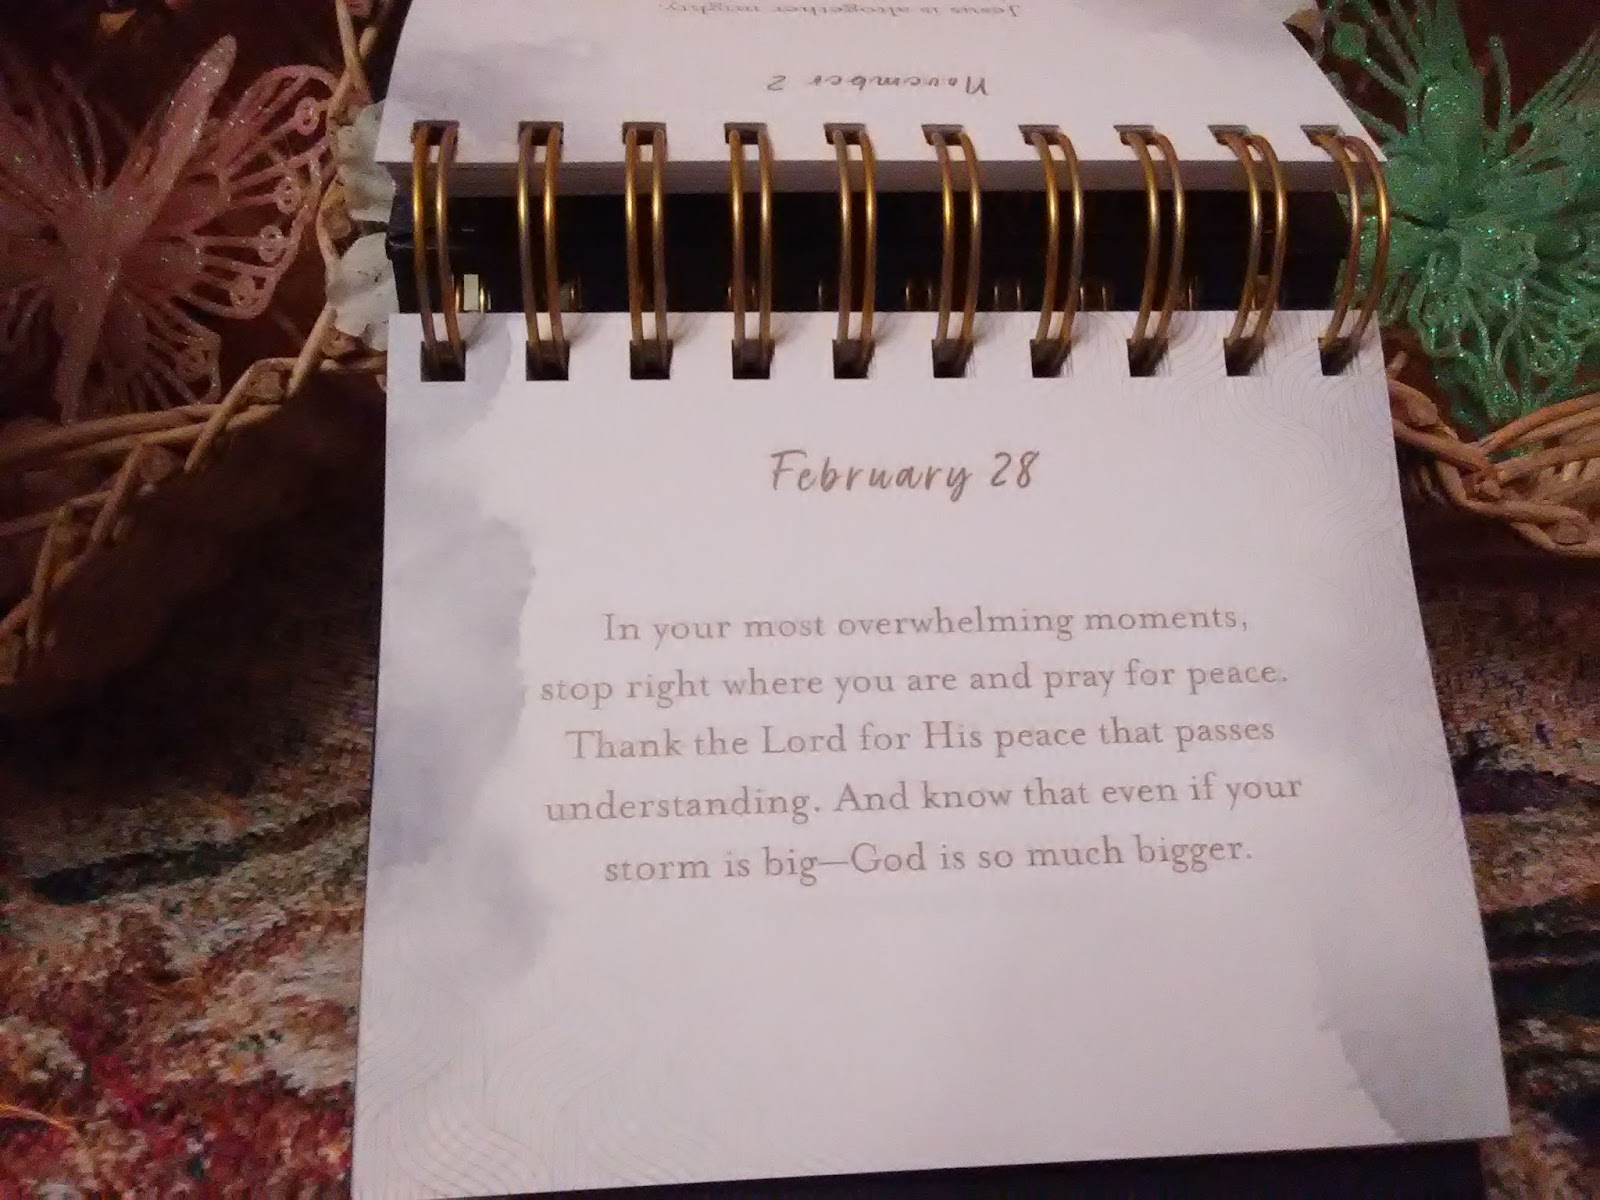 Jesus is altogether mighty.
November 2
February 28
In your most overwhelming moments,
stop right where you are and pray for peace.
Thank the Lord for His peace that passes
understanding. And know that even if your
storm is big—God is so much bigger.